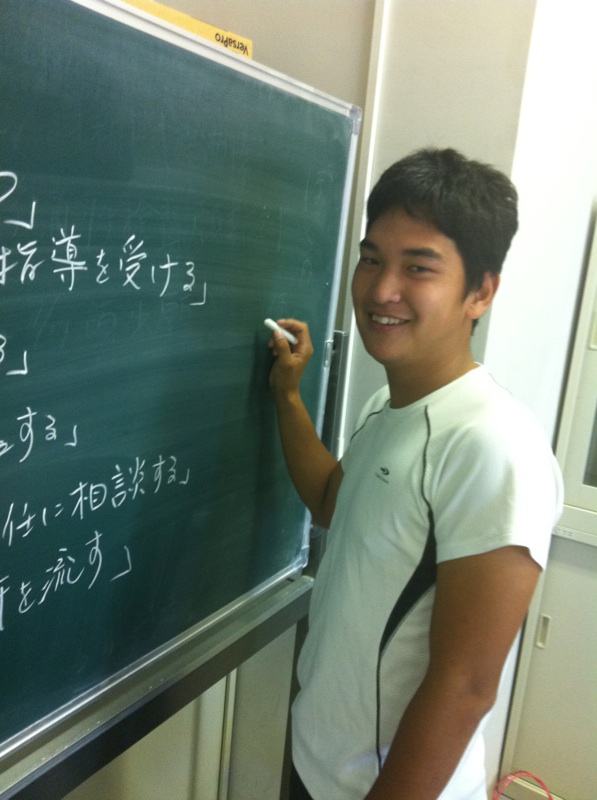 VersaPro
?」
指導を受ける」
る」
する」
任に相談する」
を流す」